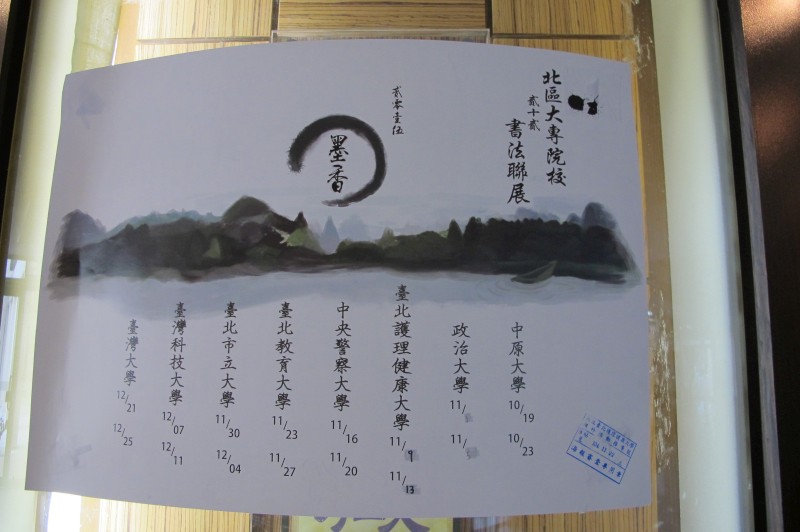 北區大專院校
貳十貳
書法聯展
貳零壹伍
墨香
中原大學
10/19
10/23
政治大學
11/
11/
臺北護理健康大學
11/9
11/13
中央警察大學
11/16
11/20
臺北教育大學
11/23
11/27
臺北市立大學
11/30
12/04
臺灣科技大學
12/07
12/11
臺灣大學
12/21
12/25